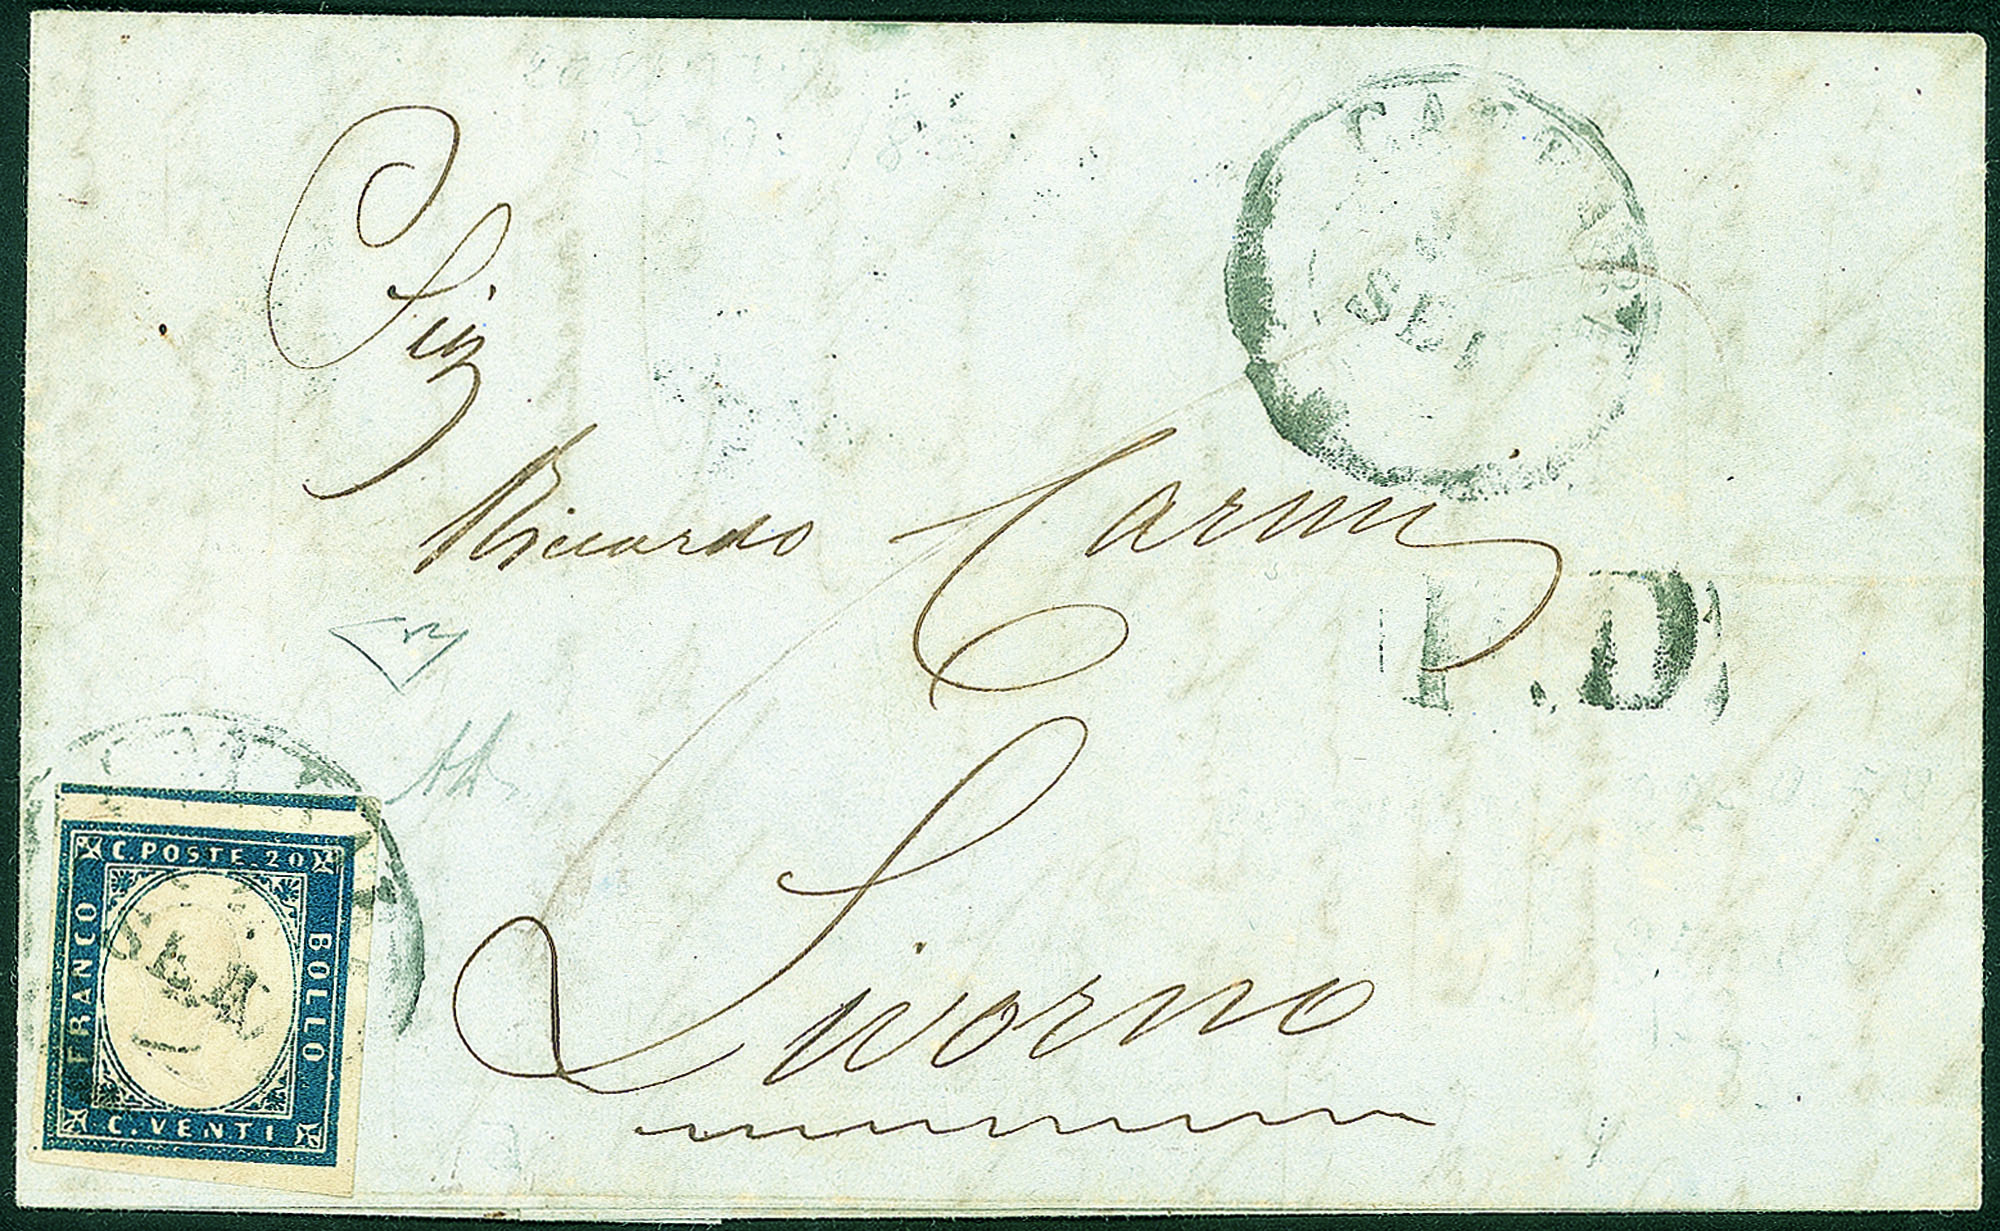 Sig
Riccardo Carmi
Livorno
P.D.
SET
C. POSTE. 20
FRANCO
BOLLO
C. VENTI